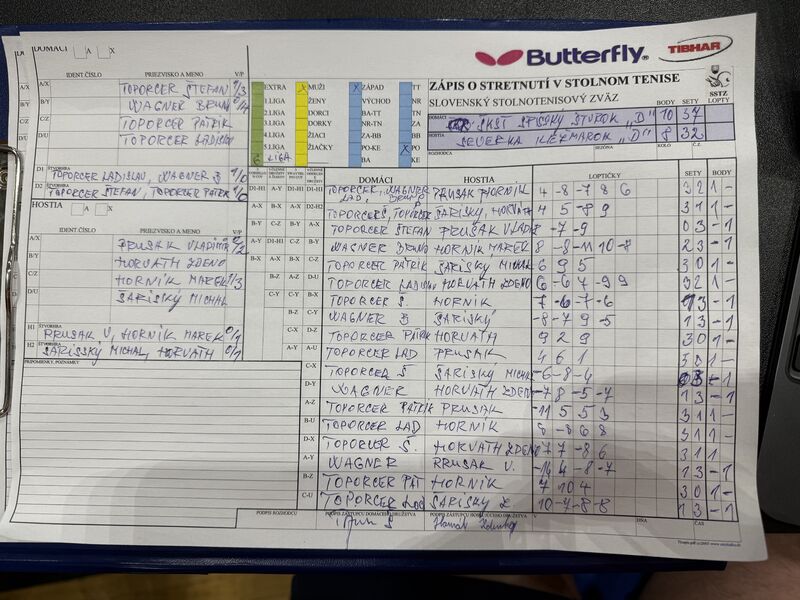 DOMÁCI A X
Butterfly
TIBHAR
ZÁPIS O STRETNUTÍ V STOLNOM TENISE
SLOVENSKÝ STOLNOTENISOVÝ ZVÄZ
SSTZ
BODY SETY LOPTY
DOMÁCI SKST SPIŠSKÝ ŠTVRTOK "D" 10 37
HOSTIA SEVERKA KEŽMAROK "D" 8 32
ROZHODCA SEZÓNA KOLO Č.Z.
IDENT.ČÍSLO PRIEZVISKO A MENO V/P
A/X TOPORCER ŠTEFAN 1/3
B/Y WAGNER BRUNO 0/4
C/Z TOPORCER PATRIK
D/U TOPORCER LADISLAV
D1 ŠTVORHRA TOPORCER LADISLAV, WAGNER B 1/0
D2 TOPORCER ŠTEFAN, TOPORCER PATRIK 1/0
EXTRA MUŽI ZÁPAD TT
1.LIGA ŽENY VÝCHOD NR
2.LIGA DORCI BA-TT TN
3.LIGA DORKY NR-TN ZA
4.LIGA ŽIACI ZA-BB BB
5.LIGA ŽIAČKY PO-KE PO
6 LIGA BA KE
HOSTIA A X
IDENT.ČÍSLO PRIEZVISKO A MENO V/P
A/X PRUSAK VLADIMÍR 2/2
B/Y HORVATH ZDENO
C/Z HORNÍK MAREK 1/3
D/U ŠARISSKÝ MICHAL
H1 ŠTVORHRA PRUSAK V, HORNÍK MAREK 0/1
H2 ŠARISSKÝ MICHAL, HORVATH 0/1
PRIPOMIENKY, POZNÁMKY
DOMÁCI HOSTIA LOPTIČKY SETY BODY
D1-H1 TOPORCER LAD, WAGNER BRUNO PRUSAK HORNÍK 4 -8 -7 8 6 3 2 1 -
TOPORCER Š, TOPORCER P ŠARISKÝ, HORVATH 4 5 -8 9 3 1 1 -
TOPORCER ŠTEFAN PRUSAK VLADIM -8 -7 -9 0 3 - 1
WAGNER BRUNO HORNÍK MAREK 8 -8 -11 10 -8 2 3 - 1
TOPORCER PATRIK ŠARISKÝ MICHAL 6 9 5 3 0 1 -
TOPORCER LADISLAV HORVATH ZDENO 6 -6 4 -9 9 3 2 1 -
TOPORCER Š. HORNÍK 7 -6 -7 -6 1 3 - 1
WAGNER B ŠARISKÝ -8 -7 9 -5 1 3 - 1
TOPORCER PATRIK HORVATH 9 2 9 3 0 1 -
TOPORCER LAD PRUSAK 4 6 1 3 0 1 -
C-X TOPORCER Š ŠARISKÝ MICHAL -6 -8 -4 0 3 - 1
D-Y WAGNER HORVATH ZDENO -7 8 -5 -7 1 3 - 1
A-Z TOPORCER PATRIK PRUSAK -11 5 5 3 3 1 1 -
B-U TOPORCER LAD HORNÍK 8 -8 6 8 3 1 1 -
D-X TOPORCER Š. HORVATH ZDENO 7 7 -8 6 3 1 1
A-Y WAGNER PRUSAK V. -14 4 -8 -7 1 3 - 1
B-Z TOPORCER PAT HORNÍK 7 10 4 3 0 1 -
C-U TOPORCER LAD ŠARISKÝ 10 -7 -8 -8 1 3 - 1
PODPIS ROZHODCU PODPIS ZÁSTUPCU DOMÁCEHO DRUŽSTVA PODPIS ZÁSTUPCU HOSŤUJÚCEHO DRUŽSTVA V DŇA ČAS